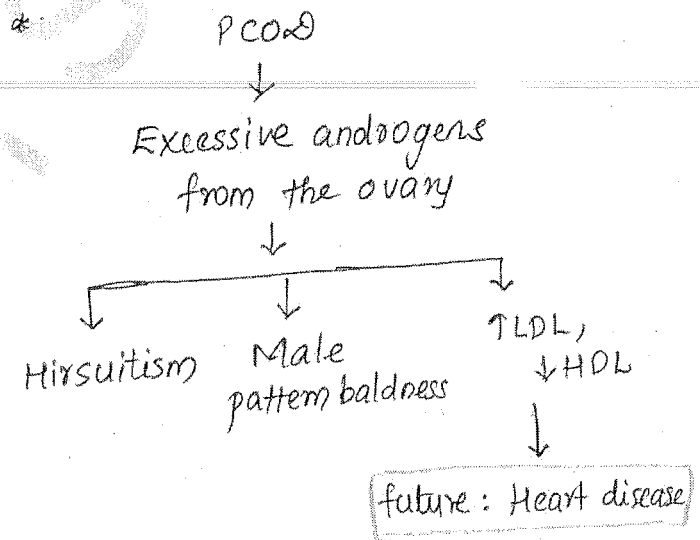 *
PCOD
↓
Excessive androgens
from the ovary
↓
↓ ↓ ↓
Hirsuitism Male ↑LDL,
pattern baldness ↓HDL
↓
future : Heart disease